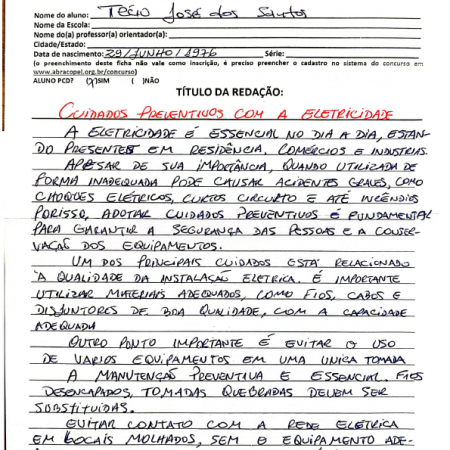 Nome do aluno: Tecio José dos Santos
Nome da Escola:
Nome do(a) professor(a) orientador(a):
Cidade/Estado:
Data de nascimento: 29/JUNHO/1976 Série:
(o preenchimento desta ficha não vale como inscrição, é preciso preencher o cadastro no sistema do concurso em
www.abracopel.org.br/concurso)
ALUNO PCD? (/)SIM ( )NÃO
TÍTULO DA REDAÇÃO:
CUIDADOS PREVENTIVOS COM A ELETRICIDADE
A ELETRICIDADE É ESSENCIAL NO DIA A DIA, ESTAN-
DO PRESENTES EM RESIDÊNCIA, COMÉRCIOS E INDUSTRIAS.
APESAR DE SUA IMPORTÂNCIA, QUANDO UTILIZADA DE
FORMA INADEQUADA PODE CAUSAR ACIDENTES GRAVES, COMO
CHOQUES ELÉTRICOS, CURTOS CIRCURTO E ATÉ INCÊNDIOS
PORISSO, ADOTAR CUIDADOS PREVENTIVOS É FUNDAMENTAL
PARA GARANTIR A SEGURANÇA DAS PESSOAS E A CONSER-
VAÇÃO DOS EQUIPAMENTOS.
UM DOS PRINCIPAIS CUIDADOS ESTÁ RELACIONADO
A QUALIDADE DA INSTALAÇÃO ELETRICA. É IMPORTANTE
UTILIZAR MATERIAIS ADEQUADOS, COMO FIOS, CABOS E
DISJUNTORES DE BOA QUALIDADE, COM A CAPACIDADE
ADEQUADA
OUTRO PONTO IMPORTANTE É EVITAR O USO
DE VARIOS EQUIPAMENTOS EM UMA UNICA TOMADA
A MANUTENÇÃO PREVENTIVA E ESSENCIAL. FIOS
DESENCAPADOS, TOMADAS QUEBRADAS DEVEM SER
SUBSTITUIDAS.
EVITAR CONTATO COM A REDE ELETRICA
EM LOCAIS MOLHADOS, SEM O EQUIPAMENTO ADE-